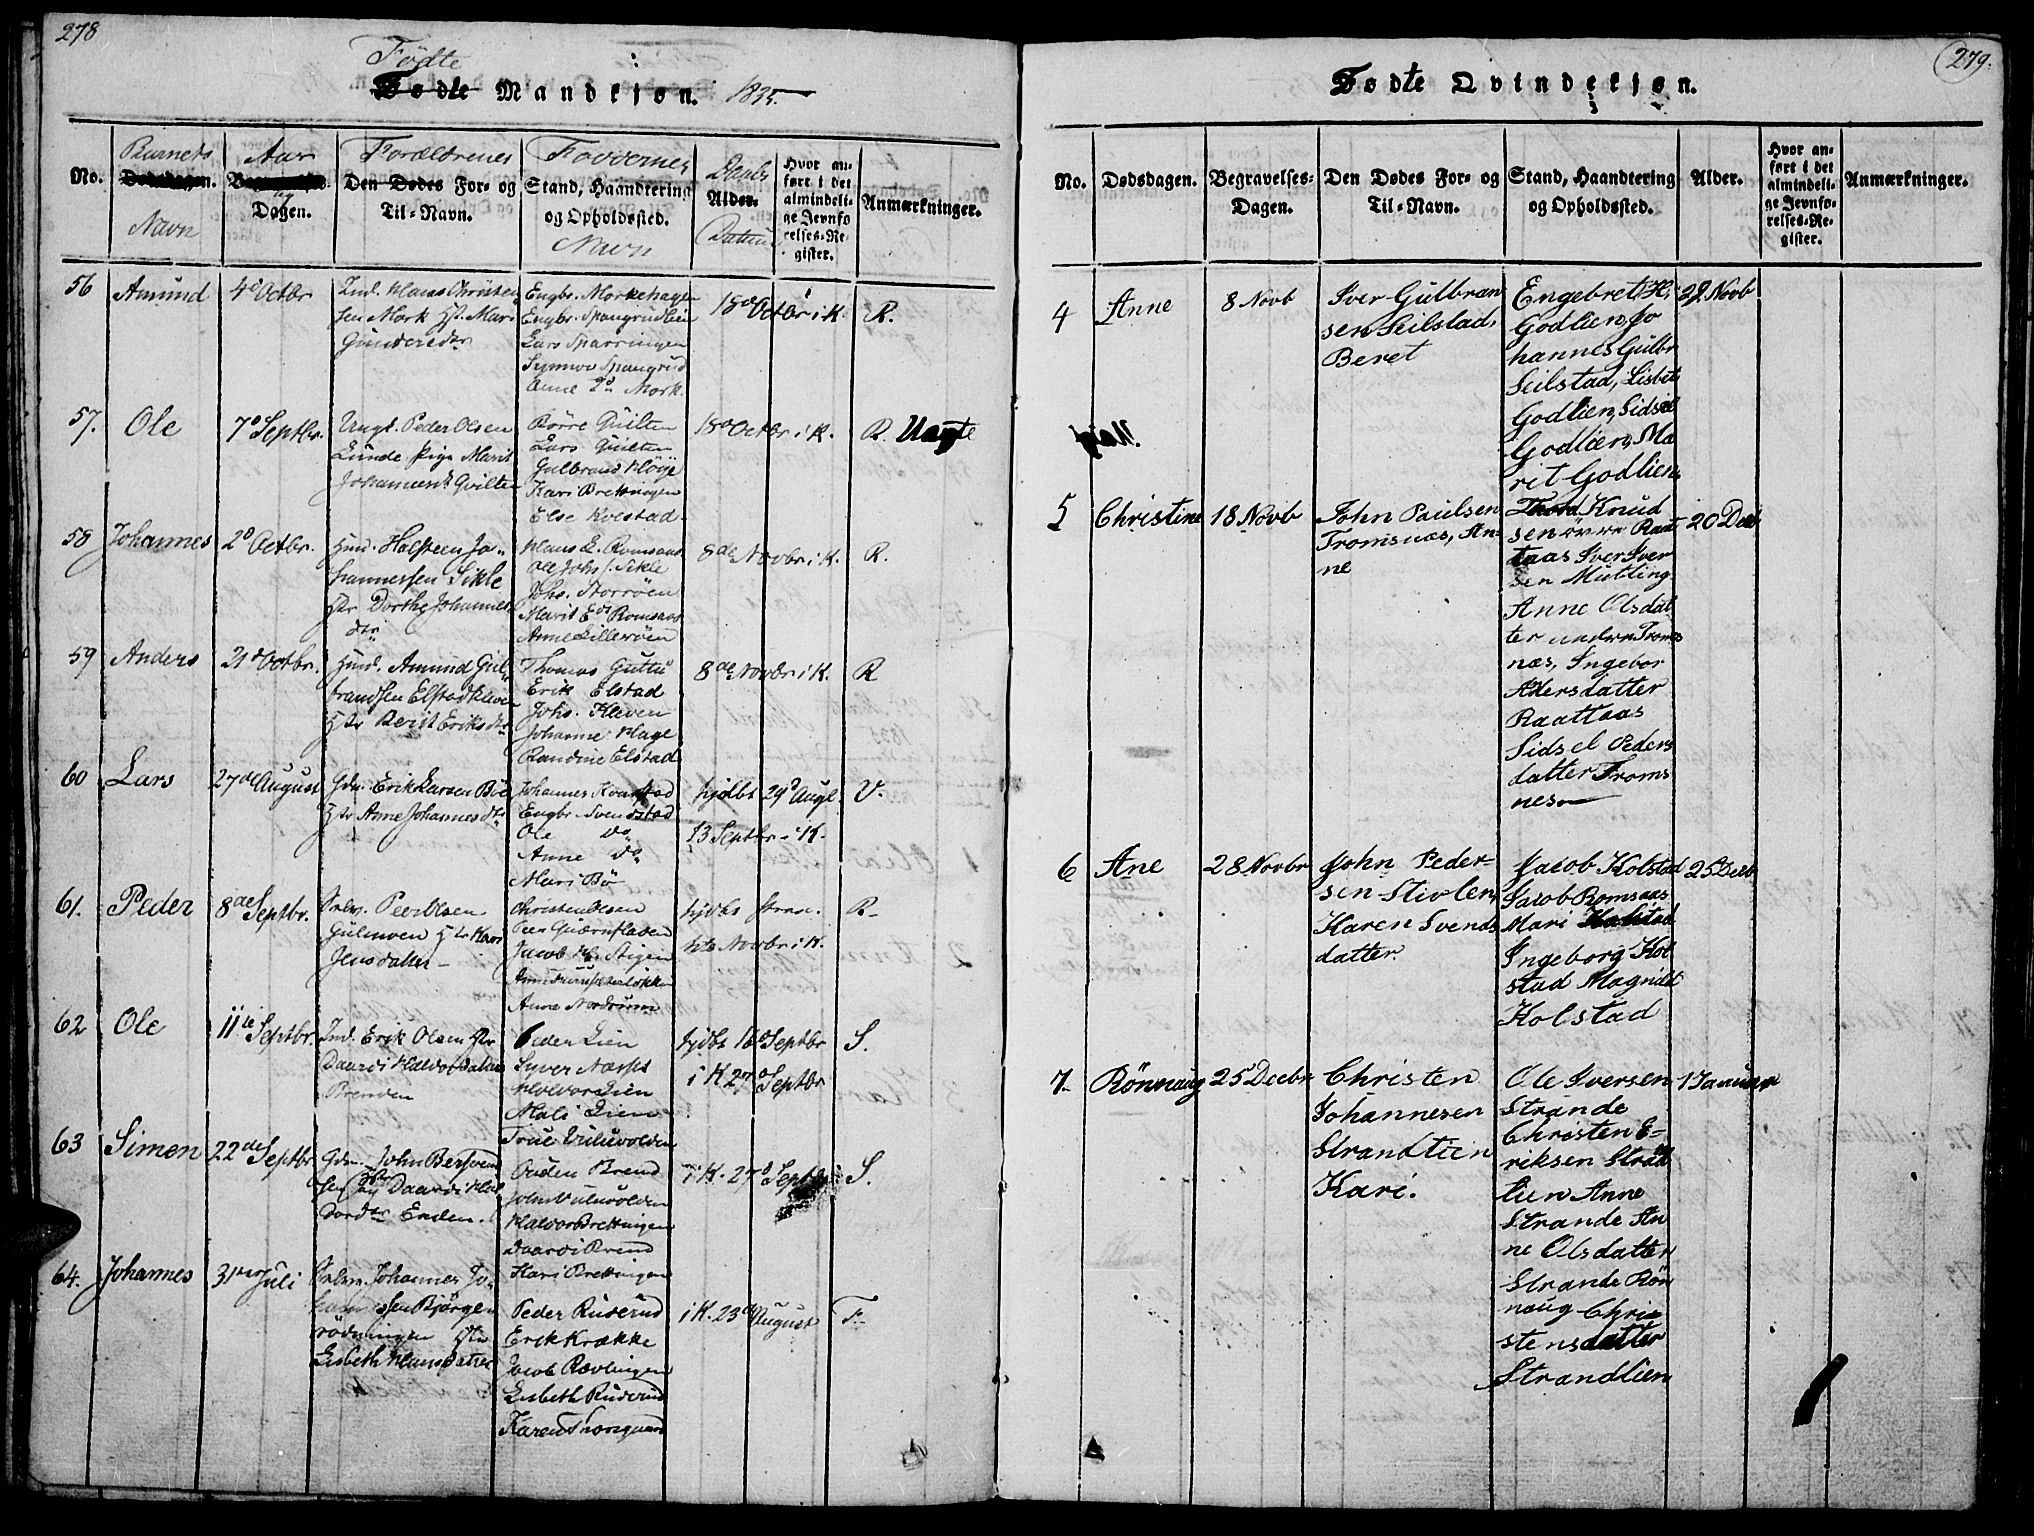 278
Födte
Fødte Mandkjøn. 1835.
No.
Barnets
Dødsdagen.
Navn
Aar
Dagen.
Forældrenes
Den Dødes For- og
Til-Navn.
Faddernes
Stand, Haandtering
og Opholdssted.
Navn
Daabs
Alder.
Datum
Hvor an-
ført i det
almindeli-
ge Jevnfø-
relses-Re-
gister.
Anmærkninger.
56 Amund 4de Octbr
Ind. Hans Christen
sen Mork Hst. Mari
Gundersdtr
Engbr. Morkehagen
Engbr. Spangrudlien
Lars Sparringen
Synnov Spangrud
Anne do Mork
18de Octbr i K. R.
57. Ole 7de Septbr.
Ungk. Peder Olsen
Lunde, Pige Marit
Johannesdr. Qvilten
Börre Quilten
Lars Quilten
Gulbrand Höye
Kari Brettingen
Else Kolstad
18de Octbr i K. R. Uægte
58 Johannes 2de Octbr.
Huusm. Halsteen Jo-
hannessen Sikle
Hstr Dorthe Johannes
dtr
Hans E. Romsaas
Ole Johs. Sikle
Johs. Storröen
Marit Edr Romsaas
Anne Lilleröen
8de Novbr i K. R.
59 Anders 21de Octbr.
Huusm. Amund Gul
brandsen Elstadkleven
Hstr Berit Eriksdtr
Thomas Guttu
Erik Elstad
Johs. Kleven
Johanne Hage
Randine Elstad
8de Novbr i K. R
60 Lars 27de August
Gdm. Erik Larsen Böe
Hstr Anne Johannesdtr
Johannes Kvarstad
Engbr. Svendstad
Ole do
Anne do
Mari Bö
hjdbt 29de Augt.
13 Septbr. i K. V.
61. Peder 8de Septbr.
Peer Olsen
Hstr Kari
Jensdatter
Christen Olsen
Peer Quærnfladen
Jacob
Anne Nordrum
hjdbt
Novbr i K. R.
62 Ole 11te Septbr.
Ind. Erik Olsen Hstr
Daardi Halvorsdatter
Brenden
Peder Lien
Syver Næss
Halvor Lien
Mali Lien
True Vuluvolden
hjdbt 16de Septbr
i K 27de Septbr S.
63 Simen 22de Septbr
Gdm. John Bersvend
sen Hstr Daardi Hal
vordtr Enden.
Ouden Brend
John Vuluvolden
Halvor Brettingen
Daardi Brend
Kari Brettingen
i K. 27de Septbr S.
64. Johannes 31te Juli
Johannes Jo-
hannessen Bjørge
rödningen Hstr
Lisbeth Hansdatter
Peder Ruderud
Erik Krække
Jacob Rævlingen
Lisbeth Ruderud
Karen Thorsgaard
i K. 23de August F
279.
Fødte Qvindekjøn.
No.
Dødsdagen.
Begravelses-
Dagen.
Den Dødes For- og
Til-Navn.
Stand, Haandtering
og Opholdssted.
Alder.
Hvor an-
ført i det
almindeli-
ge Jevnfø-
relses-Re-
gister.
Anmærkninger.
4 Anne 8 Novb
Iver Gulbran
sen Seilstad,
Beret
Engebret H.
Godlien, Jo
hannes Gulbr
Seilstad, Lisbet
Godlien, Sidsel
Godlien, Ma
rit Godlien
29 Novb
5 Christine 18 Novb
John Paulsen
Tromsnæs, An
ne
Knud
sen övre Raat
taas Iver Iver
sen Mütling
Anne Olsdat
ter nedre Troms
næs, Ingebor
Adersdatter
Raattaas
Sidsel Peders
datter Troms
nes
20 Deb
6 Ane 28 Novbr
John Peder-
sen Stivlen,
Karen Svends
datter
Jacob Kolstad
Jacob Romsaas
Mari Kolstad
Ingeborg Kol
stad Magnild
Kolstad
25 Decb
7 Rönnaug 25 Decbr
Christen
Johannesen
Strandlien
Kari.
Ole Iversen
Strande
Christen E-
riksen Strand
lien Anne
Strande An
ne Olsdatter
Strande Rön
naug Chri
stensdatter
Strandlien
1 Januar